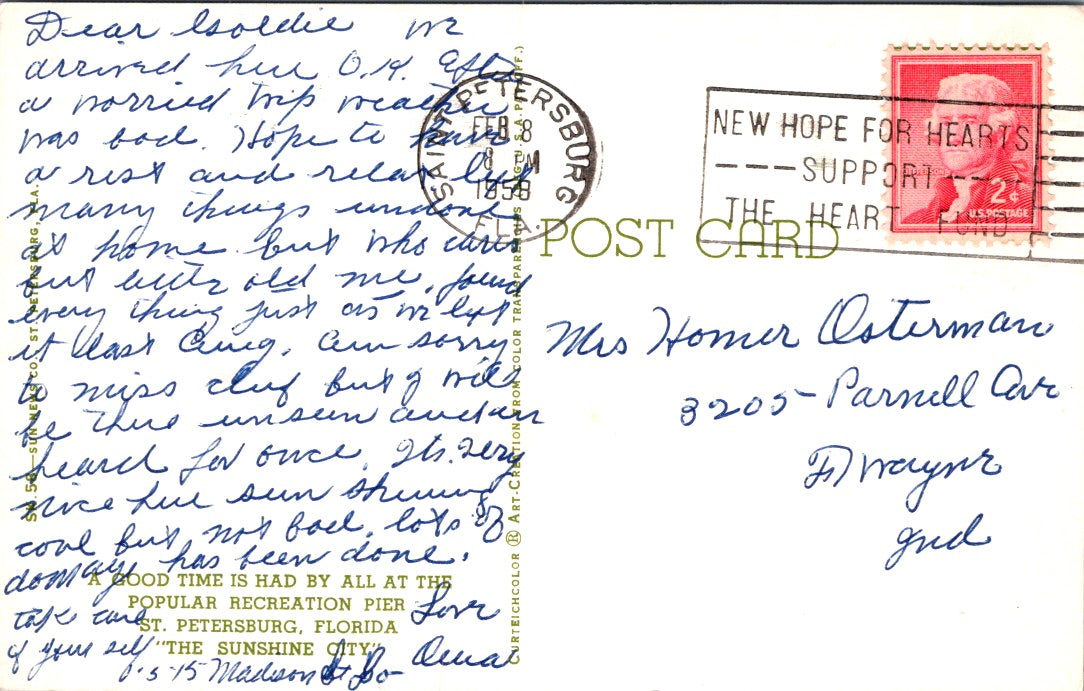 Dear Goldie we
arrived here O.K. after
a worried trip weather
was bad. Hope to have
a rest and relax left
many things undone
at home but who cares
but little old me, found
every thing just as we left
it last Aug. am sorry
to miss club but I will
be there unseen and un
heard for once. Its very
nice here sun shining
cool but not bad. lots of
damage has been done.
take care
of your self
Love
Oma
Madison St So
A GOOD TIME IS HAD BY ALL AT THE
POPULAR RECREATION PIER
ST. PETERSBURG, FLORIDA
"THE SUNSHINE CITY"
SUN NEWS CO., ST. PETERSBURG, FLA.
CURTEICHCOLOR ® ART-CREATION FROM COLOR TRANSPARENCY
SAINT PETERSBURG
FEB 8
8 PM
1958
FLA.
NEW HOPE FOR HEARTS
SUPPORT
THE HEART FUND
2¢
U.S. POSTAGE
POST CARD
Mrs Homer Osterman
3205 Parnell Ave
Ft Wayne
Ind